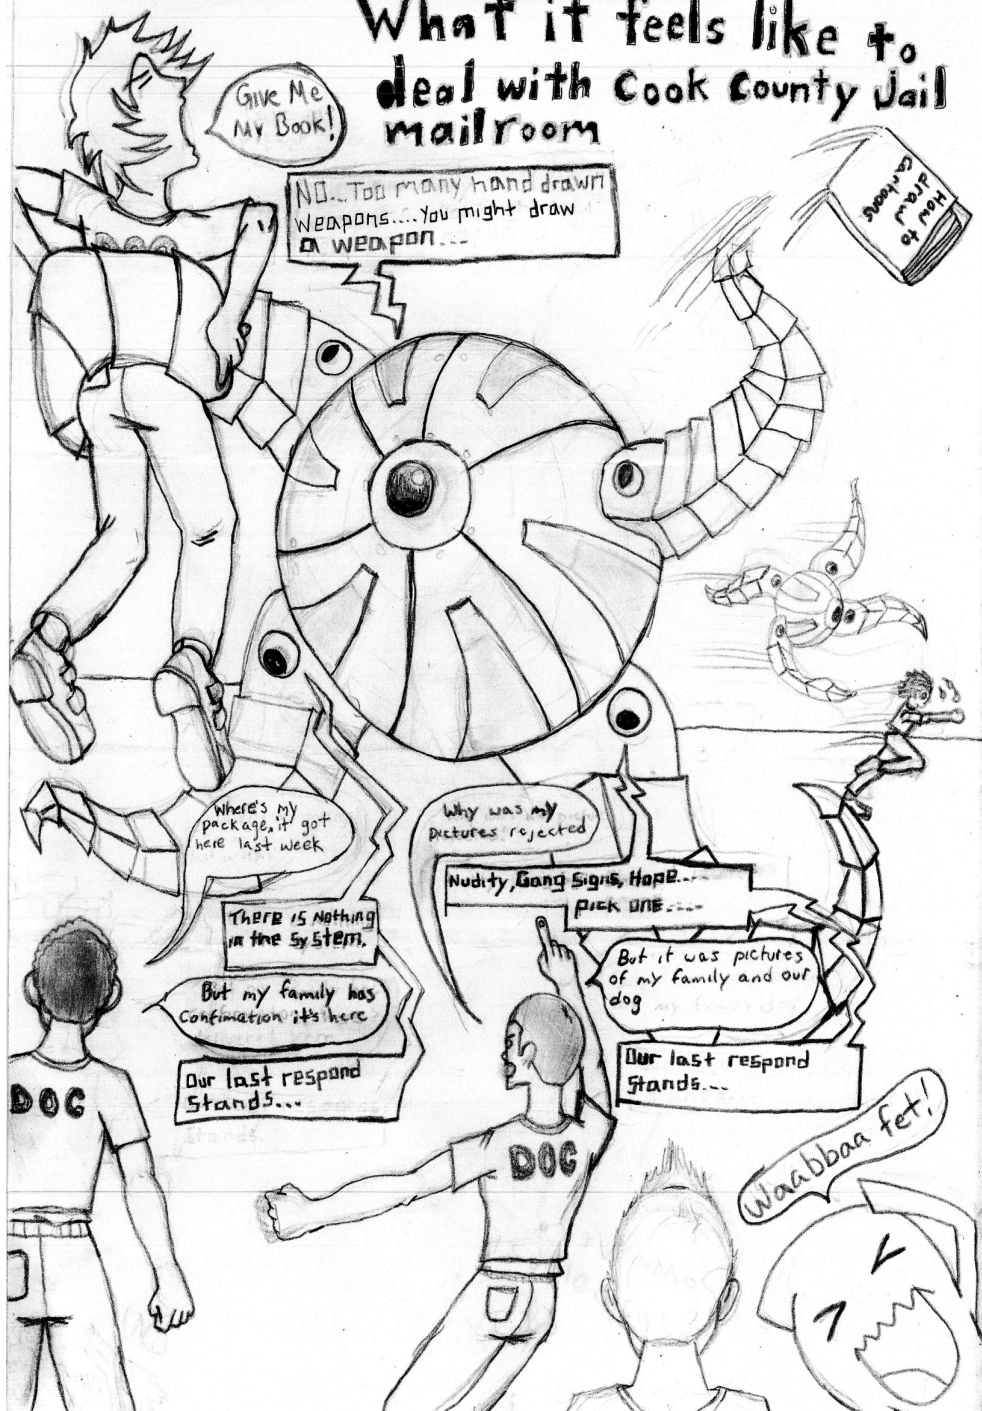 What it feels like to
deal with Cook County Jail
mailroom
Give Me
My Book!
NO...Too many hand drawn
weapons....You might draw
a weapon...
How to
draw
Cartoons
Where's my
package, it got
here last week
There is Nothing
in the System.
But my family has
Confimation it's here
Our last respond
Stands...
Why was my
pictures rejected
Nudity, Gang Signs, Hope....
pick one....
But it was pictures
of my family and our
dog
Our last respond
Stands...
DOC
DOC
Waabbaa fet!